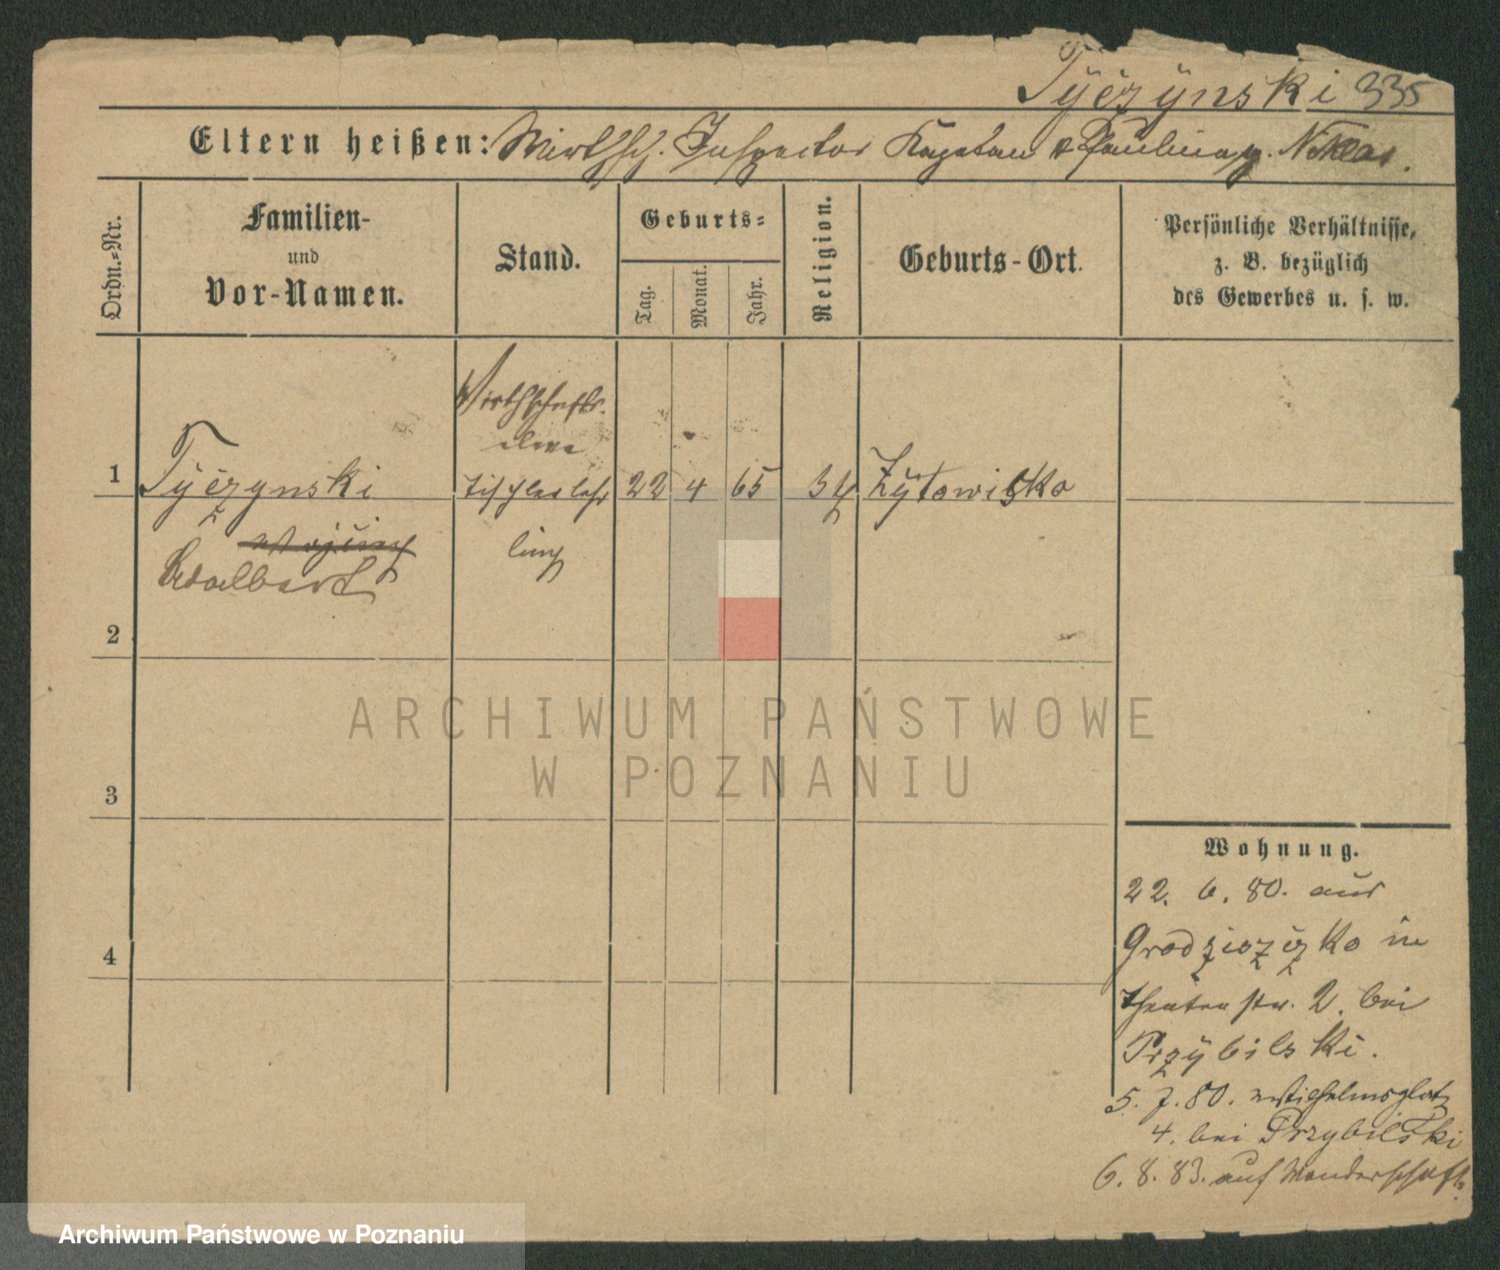 Tyczynski 335
Eltern heißen: Wirthsch. Inspector Kajetan & Paulina g. 
Ordn.-Nr.
Familien-
und
Vor-Namen.
Stand.
Geburts-
Tag.
Monat.
Jahr.
Religion.
Geburts-Ort.
Persönliche Verhältnisse,
z. B. bezüglich
des Gewerbes u. s. w.
Wirthschafts-
eleve
1 Tyczynski Tischlerlehr 22 4 65 Zytowisko
ling
Adalbert
2
ARCHIWUM PAŃSTWOWE
W POZNANIU
3
4
Wohnung.
22. 6. 80. aus
in
Theaterstr. 2. bei
Przybilski.
5. 7. 80. Wilhelmsplatz
4. bei Przybilski
6. 8. 83. auf Wanderschaft.
Archiwum Państwowe w Poznaniu